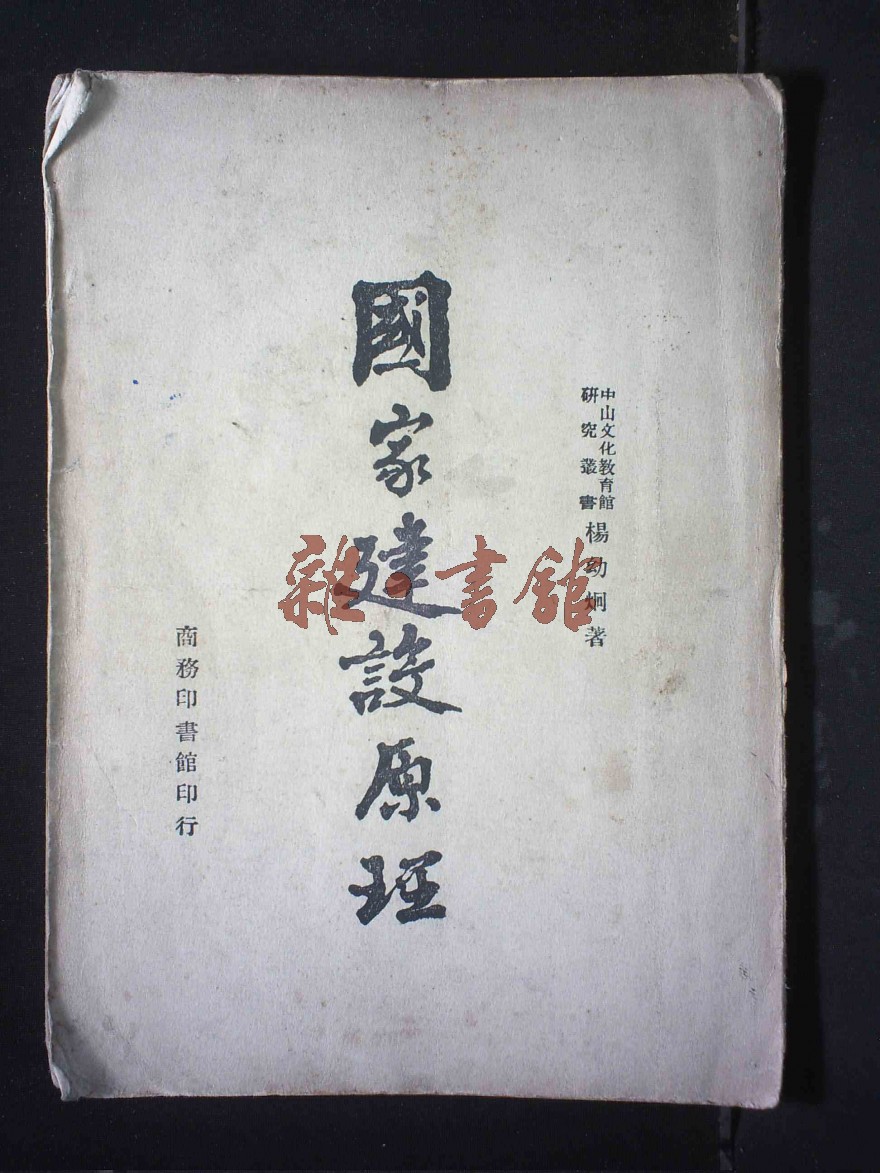 中山文化教育館
研究叢書
楊幼炯著
國家建設原理
商務印書館印行
雜·書館